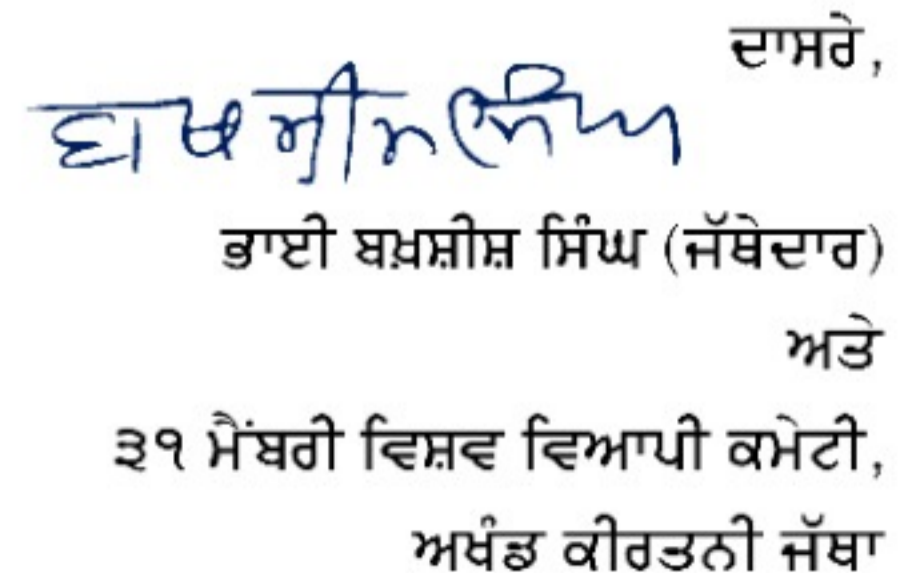 ਦਾਸਰੇ,
ਭਾਈ ਬਖ਼ਸ਼ੀਸ਼ ਸਿੰਘ (ਜੱਥੇਦਾਰ)
ਅਤੇ
੩੧ ਮੈਂਬਰੀ ਵਿਸ਼ਵ ਵਿਆਪੀ ਕਮੇਟੀ,
ਅਖੰਡ ਕੀਰਤਨੀ ਜੱਥਾ